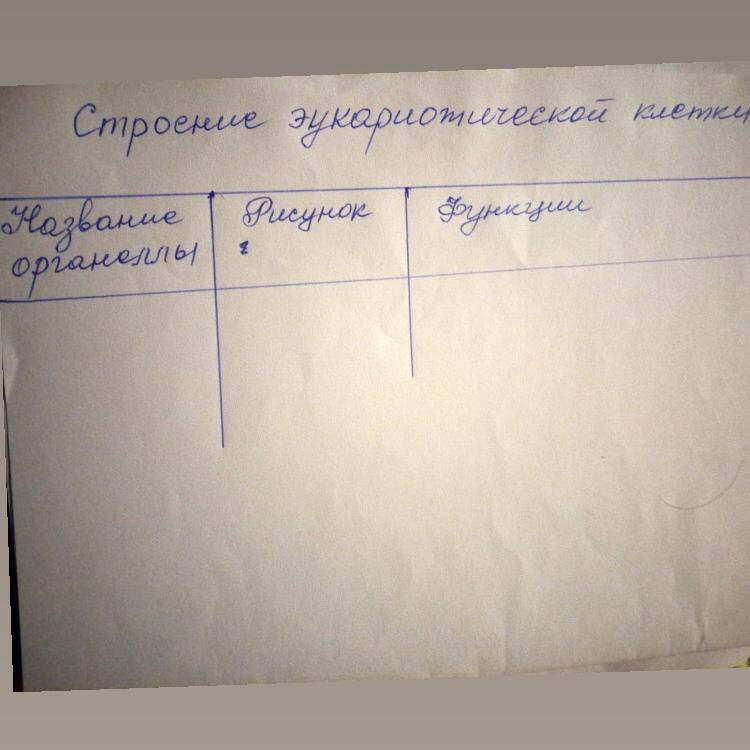 Строение эукариотической клетки
Название органеллы
Рисунок
Функции